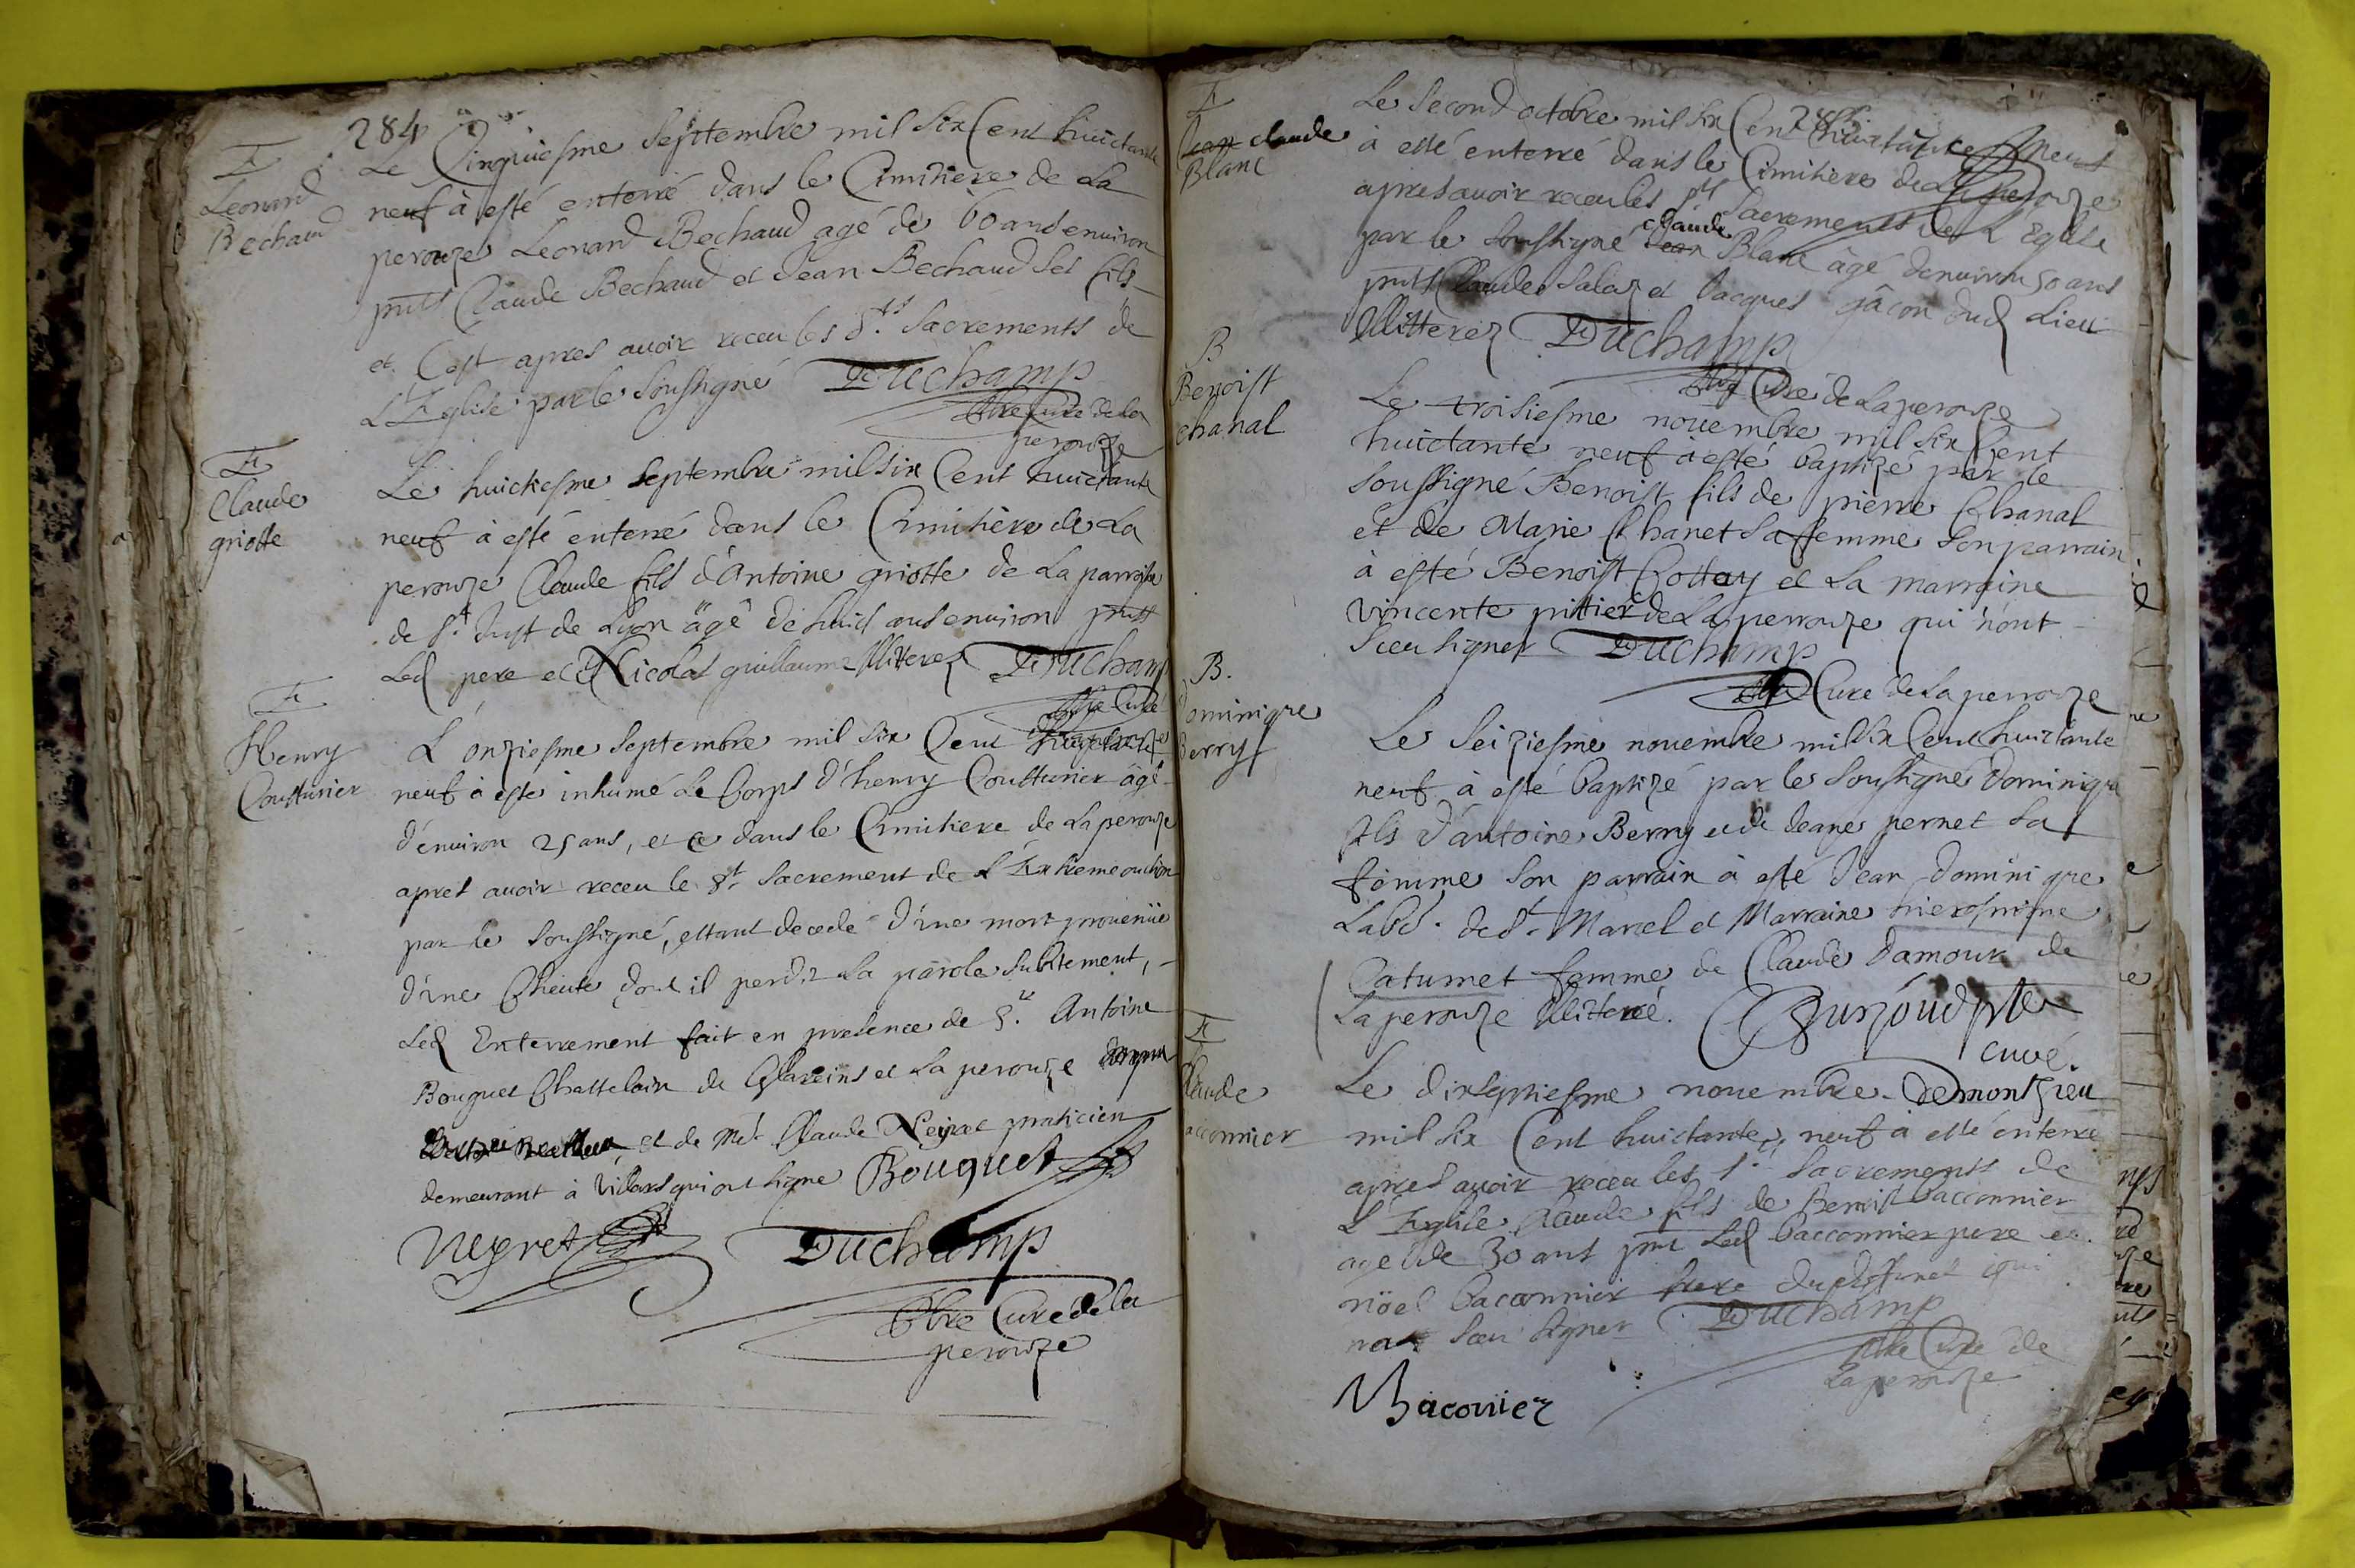 284
E
Leonard
Bechaud
Le Cinquiesme septembre mil six Cent huictante
neuf à esté enterré dans le Cimitiere de La
perouze Leonard Bechaud agé de 60 ans environ
pnts Claude Bechaud et Jean Bechaud ses fils
et C'est apres avoir receu les Sts Sacrements de
L'Eglise par le soussigné Duchamp
pbre Curé de la
perouze
E
Claude
griotte
Le huictiesme septembre mil six Cent huictante
neuf à esté enterré dans le Cimitiere de La
perouze Claude fils d'Antoine griotte de La parroisse
de St Just de Lyon âgé de huict ans environ pnts
Led pere et Nicolas guillaume Illiterez Duchamp
pbre Curé
de Laperouze
E
Henry
Cousturier
L'onziesme septembre mil six Cent huictante
neuf à esté inhumé Le Corps d'henry Cousturier âgé
d'environ 25 ans, et ce dans le Cimitiere de Laperouze
apres avoir receu le St Sacrement de L'Extreme onction
par le soussigné, estant decedé d'une mort provenüe
d'une Cheute dont il perdit La parole subitement,
Led Enterrement fait en presence de Sr Antoine
Bouquet Chastelain de Glareins et La perouze
et de Me Claude Neyret praticien
demeurant à Villars qui ont signé Bouquet
Neyret Duchamp
pbre Curé de la
perouze
285
E
Jean claude
Blanc
Le Second octobre mil six Cent huictante neuf
à esté enterré dans le Cimitiere de Laperouze
apres avoir receu les Sts Sacrements de L'Eglise
par le soussigné Jean claude Blanc âgé d'environ 50 ans
pnts Claude Salaz et Jacques Jâcon dud Lieu
Illitterez Duchamp
pbre Curé de Laperouze
B
Benoist
Chanal
Le troisiesme novembre mil six Cent
huictante neuf à esté baptizé par le
soussigné Benoist fils de pierre Chanal
et de Marie Chanet sa femme son parrain
à esté Benoist Cottey et La marraine
Vincente pittier de La perrouze qui n'ont
sceu signer Duchamp
pbre Curé de La perrouze
B.
Dominique
Berry
Le Seiziesme novembre mil six Cent huictante
neuf à esté baptizé par le soussigné Dominique
fils d'antoine Berry et de Jeane pernet Sa
femme son parrain à esté Jean Dominique
Labd. de St Marcel et Marraine hierosnime
Catumet femme de Claude Damour de
Laperouze Illiteré.
curé
de montzieu
E
Claude
baconnier
Le dixseptiesme novembre
mil six Cent huictante neuf à esté enterré
apres avoir receu les Sts Sacrements de
L'Eglise Claude fils de Benoist baconnier
agé de 30 ans pnt Led baconnier pere et
nöel baconnier frere du deffunct qui
n'ont sceu signer Duchamp
pbre Curé de
Laperouze
Baconier